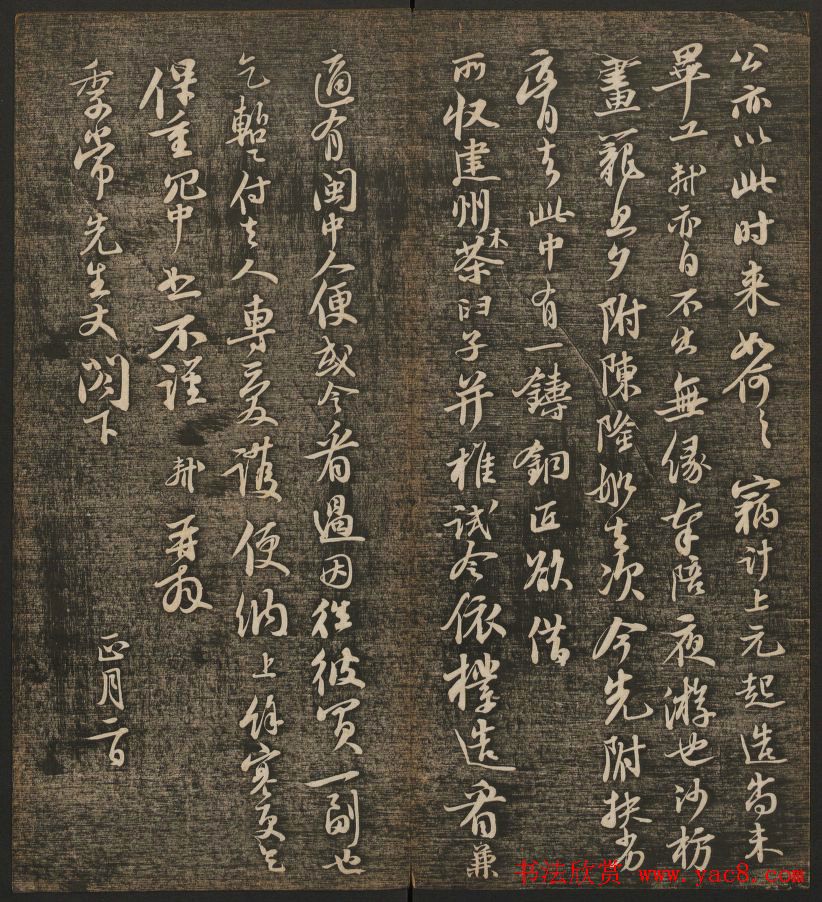 公亦以此时来如何々窃計上元起造尚未
畢工軾亦自不出無緣奉陪夜游也沙枋
畫籠旦夕附陳隆船去次今先附扶劣
膏去此中有一鑄銅匠欲借
所收建州木茶臼子并椎試令依樣造看兼
適有閩中人便或令看過因往彼買一副也
乞暫付去人專愛護便納上餘寒更乞
保重冗中恕不謹 軾再拜
季常先生丈閣下
正月二日
书法欣赏 www.yac8.com